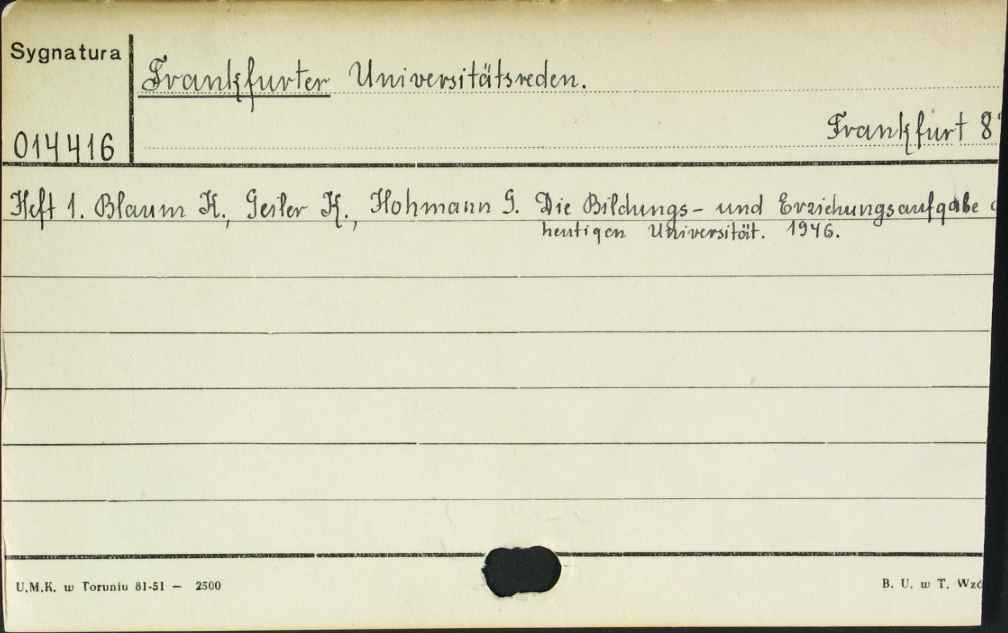 Sygnatura
Frankfurter Universitätsreden.
Frankfurt 8°
014416
Heft 1. Blaum K., Geiler K., Hohmann G. Die Bildungs- und Erziehungsaufgabe d
heutigen Universität. 1946.
U.M.K. w Toruniu 81-51 — 2500
B. U. w T. Wzó